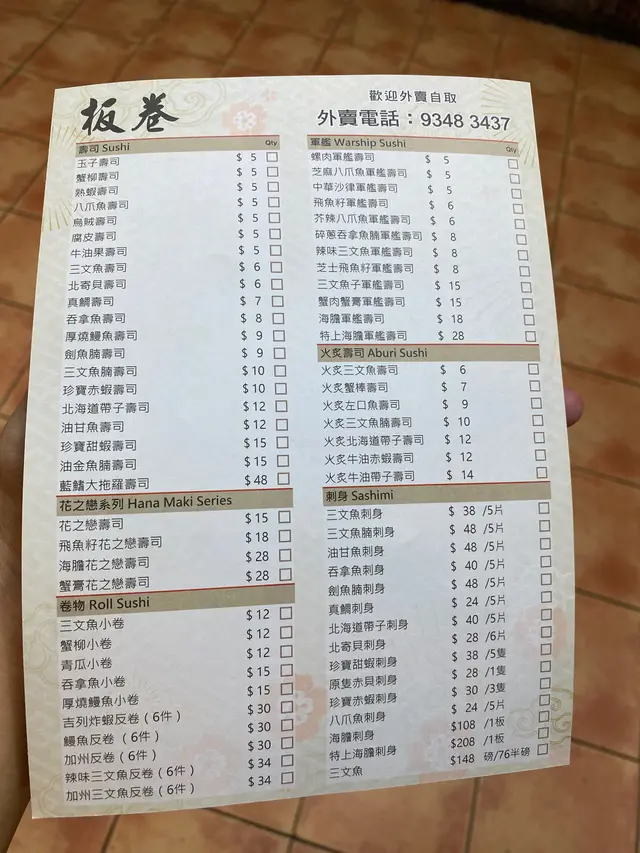 板卷
歡迎外賣自取
外賣電話：9348 3437
壽司 Sushi Qty
玉子壽司 $ 5
蟹柳壽司 $ 5
熟蝦壽司 $ 5
八爪魚壽司 $ 5
烏賊壽司 $ 5
腐皮壽司 $ 5
牛油果壽司 $ 5
三文魚壽司 $ 6
北寄貝壽司 $ 6
真鯛壽司 $ 7
吞拿魚壽司 $ 8
厚燒鰻魚壽司 $ 9
劍魚腩壽司 $ 9
三文魚腩壽司 $ 10
珍寶赤蝦壽司 $ 10
北海道帶子壽司 $ 12
油甘魚壽司 $ 12
珍寶甜蝦壽司 $ 15
油金魚腩壽司 $ 15
藍鰭大拖羅壽司 $ 48
花之戀系列 Hana Maki Series
花之戀壽司 $ 15
飛魚籽花之戀壽司 $ 18
海膽花之戀壽司 $ 28
蟹膏花之戀壽司 $ 28
卷物 Roll Sushi
三文魚小卷 $ 12
蟹柳小卷 $ 12
青瓜小卷 $ 12
吞拿魚小卷 $ 15
厚燒鰻魚小卷 $ 15
吉列炸蝦反卷 ( 6件 ) $ 30
鰻魚反卷 ( 6件 ) $ 30
加州反卷 ( 6件 ) $ 30
辣味三文魚反卷 ( 6件 ) $ 34
加州三文魚反卷 ( 6件 ) $ 34
軍艦 Warship Sushi Qty
螺肉軍艦壽司 $ 5
芝麻八爪魚軍艦壽司 $ 5
中華沙律軍艦壽司 $ 5
飛魚籽軍艦壽司 $ 6
芥辣八爪魚軍艦壽司 $ 6
碎蔥吞拿魚腩軍艦壽司 $ 8
辣味三文魚軍艦壽司 $ 8
芝士飛魚籽軍艦壽司 $ 8
三文魚子軍艦壽司 $ 15
蟹肉蟹膏軍艦壽司 $ 15
海膽軍艦壽司 $ 18
特上海膽軍艦壽司 $ 28
火炙壽司 Aburi Sushi
火炙三文魚壽司 $ 6
火炙蟹棒壽司 $ 7
火炙左口魚壽司 $ 9
火炙三文魚腩壽司 $ 10
火炙北海道帶子壽司 $ 12
火炙牛油赤蝦壽司 $ 12
火炙牛油帶子壽司 $ 14
刺身 Sashimi
三文魚刺身 $ 38 /5片
三文魚腩刺身 $ 48 /5片
油甘魚刺身 $ 48 /5片
吞拿魚刺身 $ 40 /5片
劍魚腩刺身 $ 48 /5片
真鯛刺身 $ 24 /5片
北海道帶子刺身 $ 40 /5片
北寄貝刺身 $ 28 /6片
珍寶甜蝦刺身 $ 38 /5隻
原隻赤貝刺身 $ 28 /1隻
珍寶赤蝦刺身 $ 30 /3隻
八爪魚刺身 $ 24 /5片
海膽刺身 $108 /1板
特上海膽刺身 $208 /1板
三文魚 $148 磅/76半磅